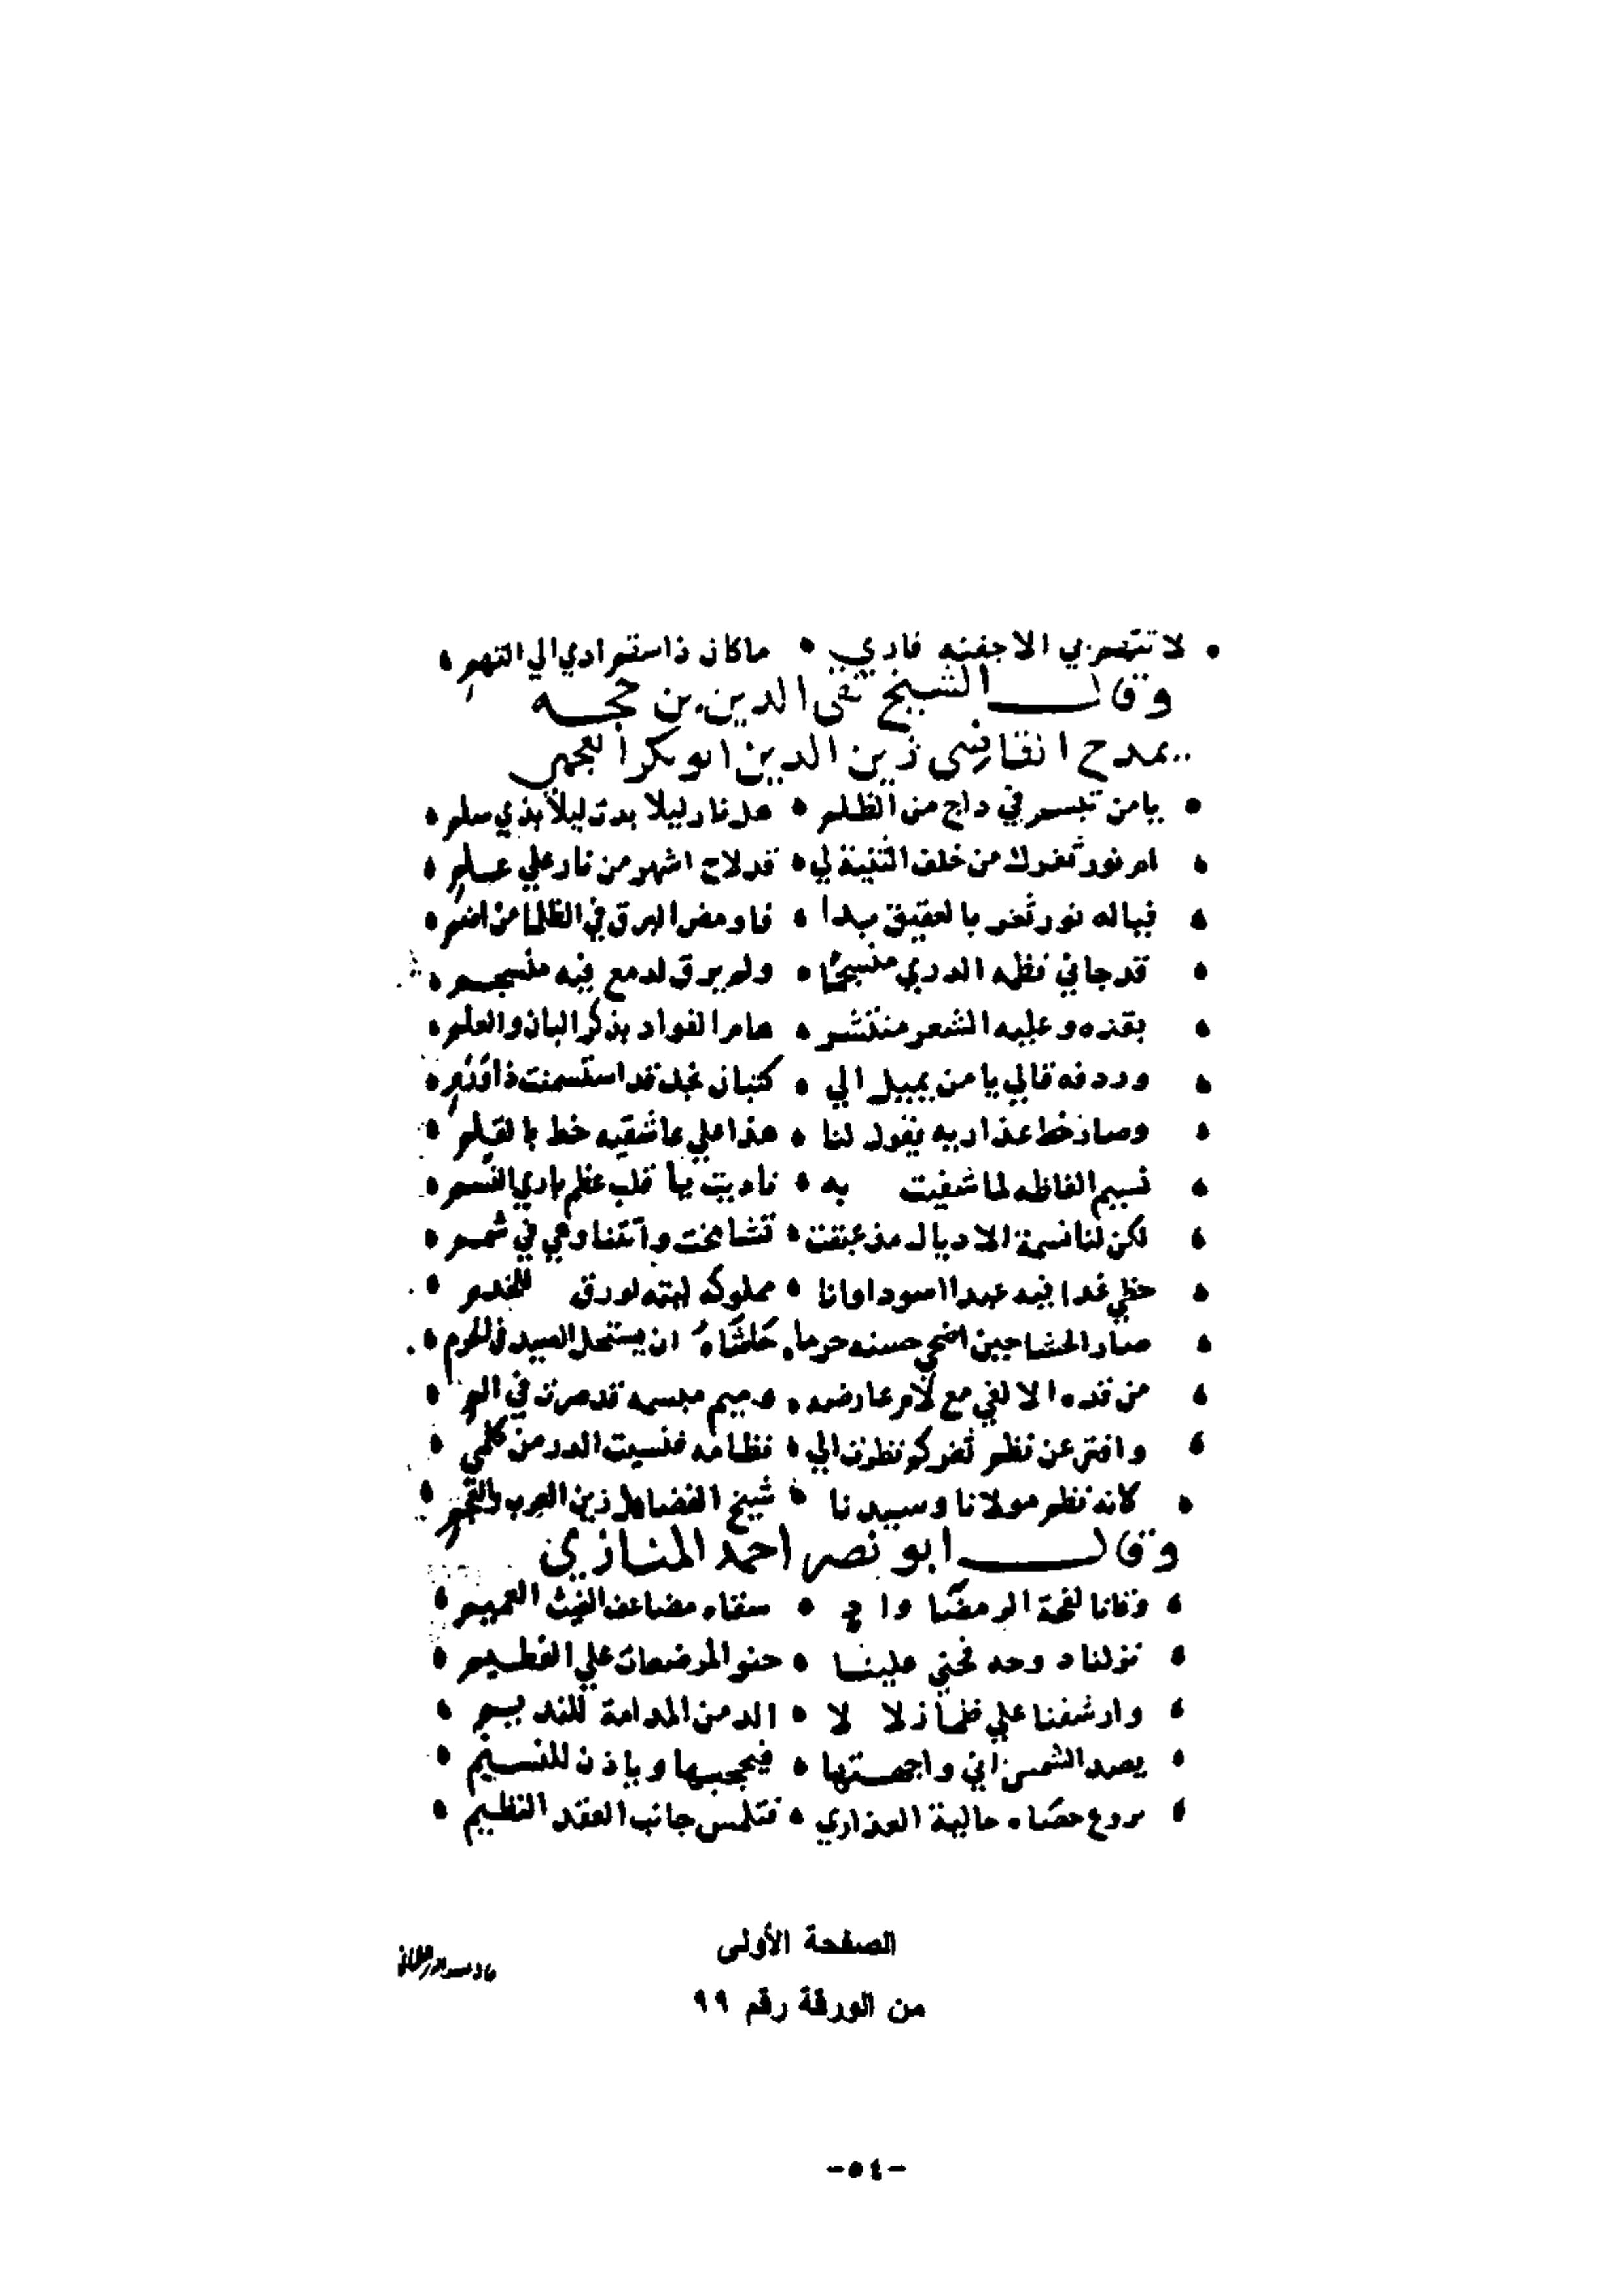 لا تتهمرني الا جفنيه فادي • ماكان ذا ستمرادي الي التهم
وقال الشيخ تقى الدين بن حجه
يمدح القاضى زين الدين ابو بكر العجمى
يا من تبسم في داج من الظلم • هل نار ليلا بدت ليلا بذي سلم
ام نور ثغرك من خلف الثنية لي • قد لاح اشهر من نار علي علم
فياله نور ثغر بالعقيق بدا • فاومض البرق في الظلما من اضم
قد جاني نظمه الدري منسجما • ولم يرق لدمع فيه منسجم
بقده وعليه الشعر منتشر • هام الفواد بذكر البان والعلم
وردفه قال يا من يميل الي • كثبان نجد قد استسمنت ذا ورم
وصار خط عذاريه يقول لنا • هذا علي عاشقيه خط بالقلم
نسيم الفاظه لما شفيت به • ناديت يا قلب عظم باري النسم
لكن لنا نسمة الاديال مذ عبقت • تشامخت واتتنا وهي في شمم
حظي غدا فيه عبدا اسودا وانا • مملوكه ليته لو رق للخدم
صاد الحشا حين اضحي حسنه حرما • حاشاه ان يستحل الصيد في الحرم
من قده الالفي مع لام عارضه • وميم مبسمه قد صرت في الم
وافتر عن نظم ثغر كم نظرت الي • نظامه فنسيت الدر من كلمي
كانه نظم مولانا وسيدنا • شيخ الفضايل زين العرب والعجم
وقال ابو نصر احمد المنازي
وقانا لفحة الرمضا واد • سقاه مضاعف الغيث العميم
نزلنا دوحه فحني علينا • حنو المرضعات علي الفطيم
وارشفنا علي ظما زلا لا • الد من المدامة للنديم
يصد الشمس اني واجهتها • فيحجبها وياذن للنسيم
يروع حصاه حالية العذاري • فتلمس جانب العقد النظيم
الصفحة الأولى
من الورقة رقم ٩٩
-٥٤-